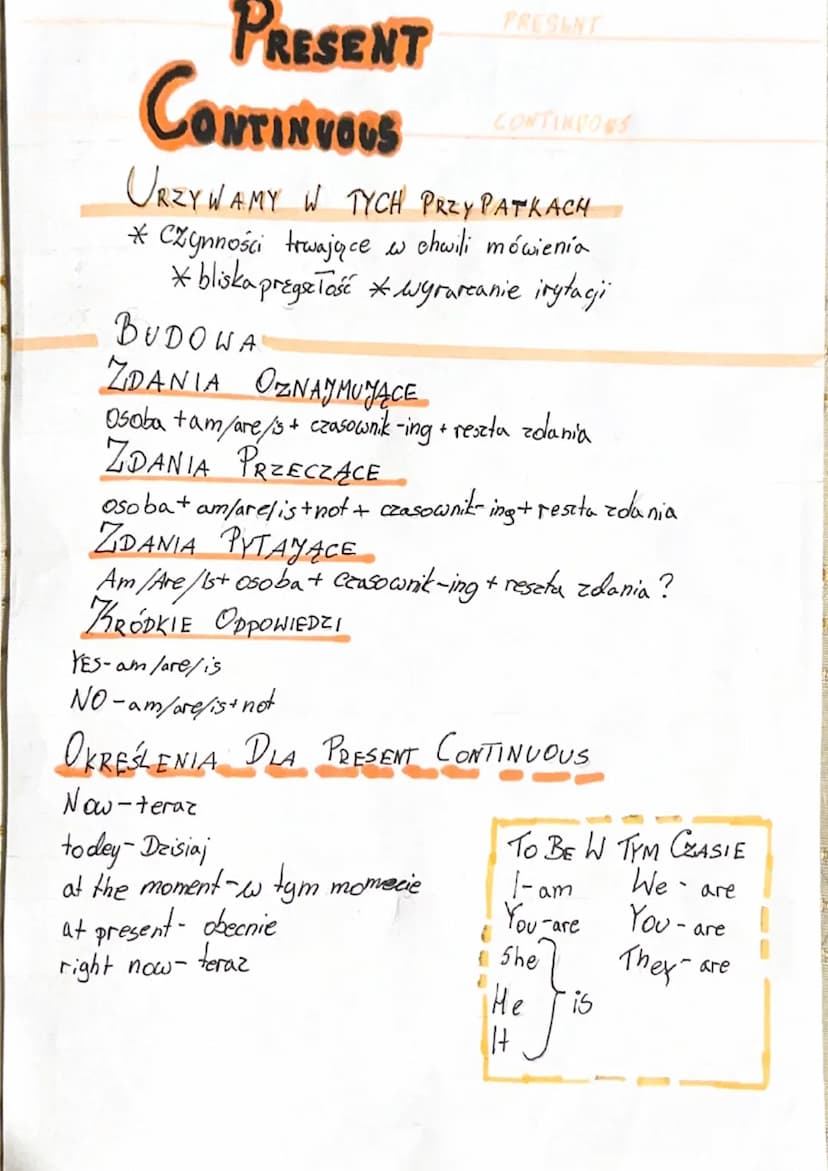 PRESENT
CONTINUOUS
URZYWAMY W TYCH PRZYPATKACH
* CZynności trwające w chwili mówienia
* bliska przeszłość * wyrarcanie irytacji
BUDOWA
ZDANIA OZNAJMUJĄCE
Osoba + am/are/is + czasownik -ing + reszta zdania
ZDANIA PRZECZĄCE
osoba + am/are/is + not + czasownik-ing + reszta zdania
ZDANIA PYTAJĄCE
Am/Are/Is + osoba + czasownik-ing + reszta zdania?
KRÓDKIE ODPOWIEDZI
YES-am/are/is
NO-am/are/is+not
OKREŚLENIA DLA PRESENT CONTINUOUS
Now-teraz
today-Dzisiaj
at the moment-w tym momecie
at present- obecnie
right now- teraz
TO BE W TYM CZASIE
I-am We - are
You-are You - are
She They- are
He is
It
PRESENT
CONTINUOUS